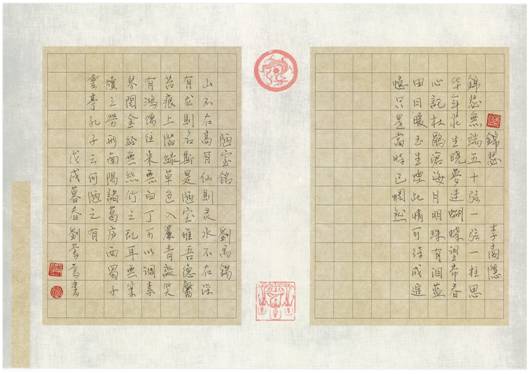 錦瑟 李商隱
錦瑟無端五十弦一弦一柱思
華年莊生曉夢迷蝴蝶望帝春
心託杜鵑滄海月明珠有淚藍
田日暖玉生煙此情可待成追
憶只是當時已惘然
陋室銘 劉禹錫
山不在高有仙則灵水不在深
有龙則名斯是陋室惟吾德馨
苔痕上階綠草色入簾青談笑
有鴻儒往來無白丁可以調素
琴閱金經無絲竹之乱耳無案
牘之勞形南陽諸葛庐西蜀子
雲亭孔子云何陋之有
戊戌暮春劉書